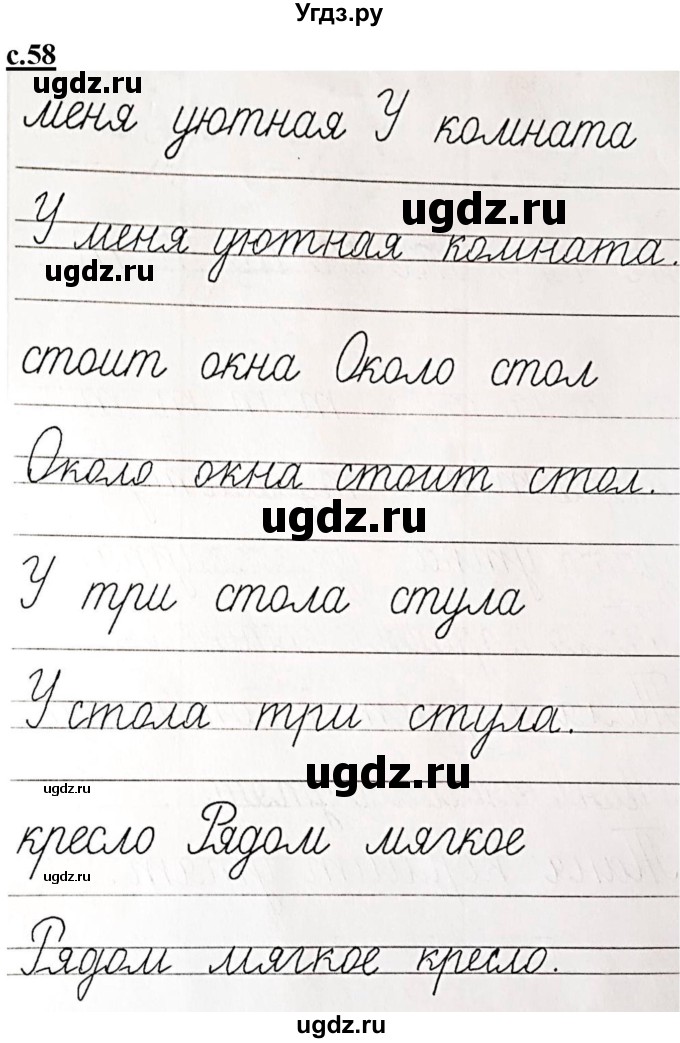 Угдз.ру
с.58
ugdz.ru
меня уютная У комната
ugdz.ru
У меня уютная комната.
ugdz.ru
стоит окна Около стол
Около окна стоит стол.
ugdz.ru
У три стола стула
У стола три стула.
ugdz.ru
ugdz.ru
кресло Рядом мягкое
ugdz.ru
Рядом мягкое кресло.
ugdz.ru